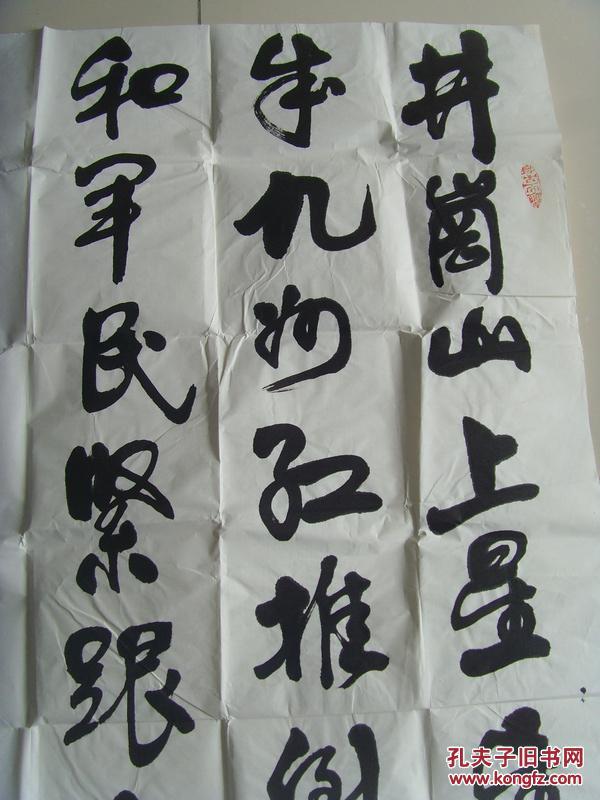 井崗山上星
成九州红推倒
和军民紧跟
孔夫子旧书网
www.kongfz.com